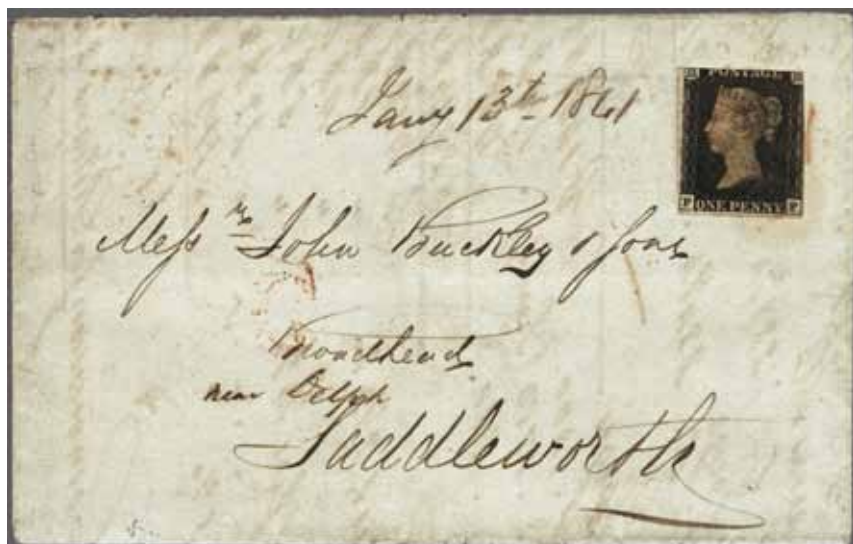 POSTAGE
Jany 13th 1841
P ONE PENNY P
Messrs John Buckley & Sons
Broadhead
near Delph
Saddleworth